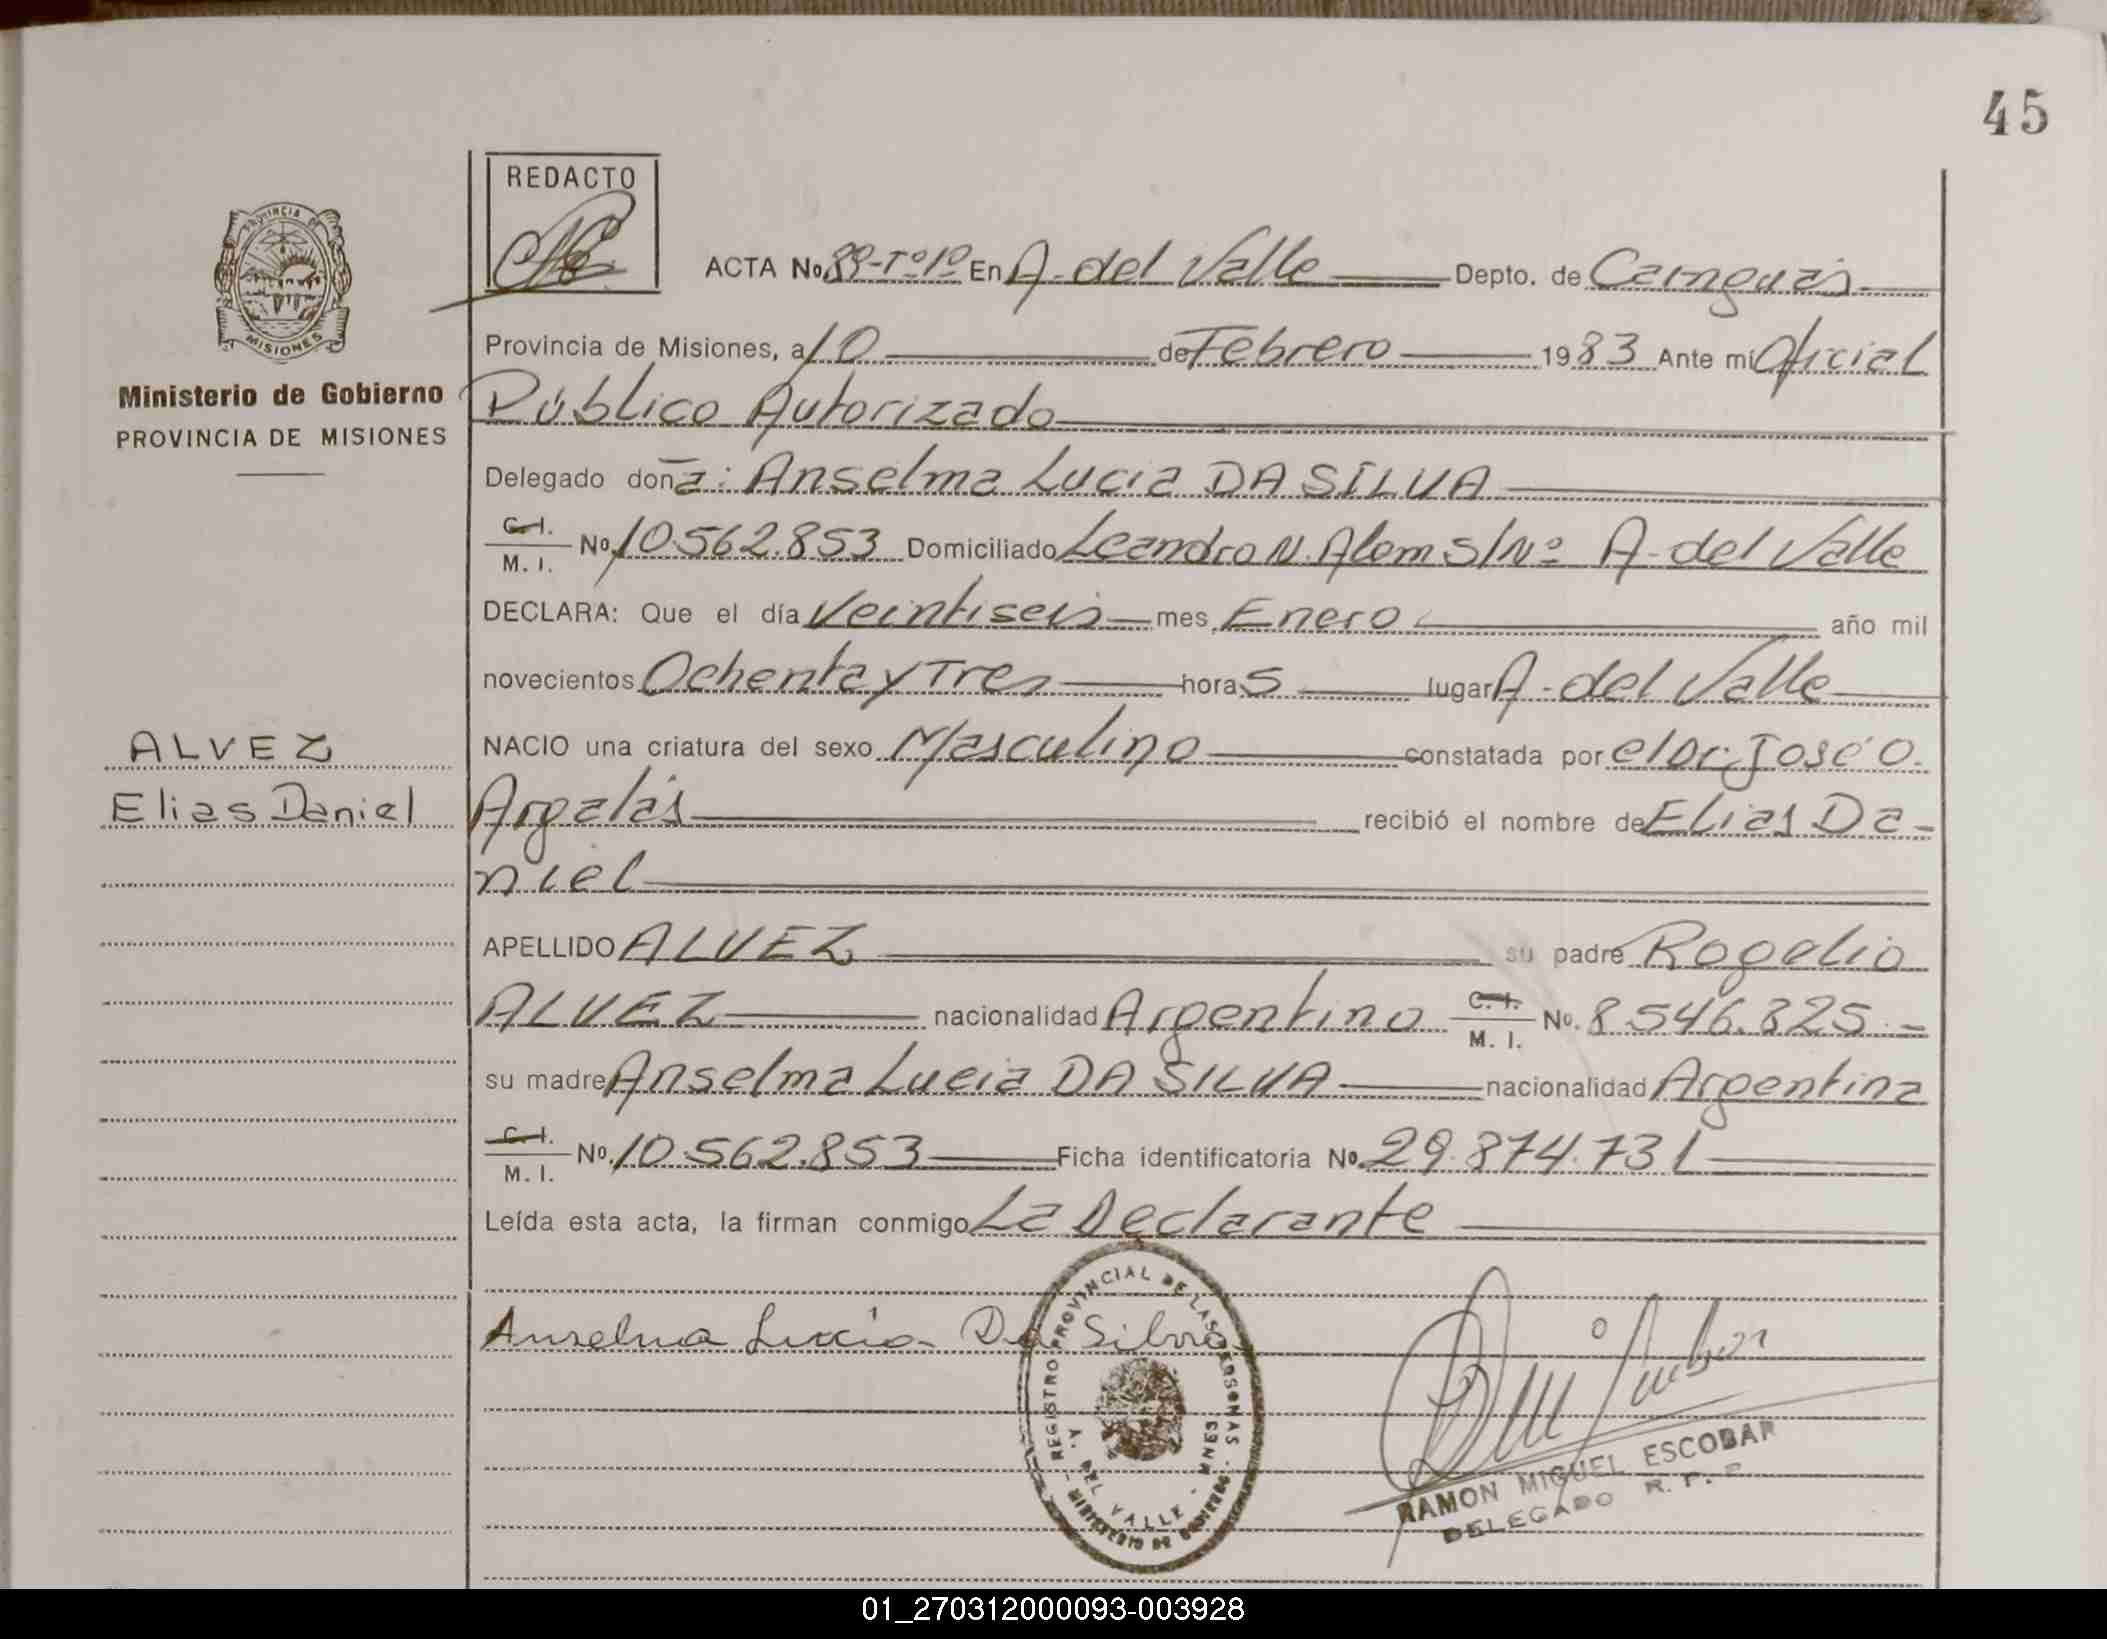 45
REDACTO
PROVINCIA DE
MISIONES
Ministerio de Gobierno
PROVINCIA DE MISIONES
ACTA No. 89-Tº1º En A. del Valle Depto. de Cainguás
Provincia de Misiones, a 10 de Febrero 1983 Ante mí Oficial
Público Autorizado
Delegado doña: Anselma Lucia DA SILVA
C. I.
M. I. No. 10.562.853 Domiciliado Leandro N. Alem S/Nº A. del Valle
DECLARA: Que el día Veintiseis mes Enero año mil
novecientos Ochenta y Tres hora 5 lugar A. del Valle
ALVEZ
Elias Daniel
NACIO una criatura del sexo Masculino constatada por el Dr. José O.
Argalás recibió el nombre de Elias Da-
niel
APELLIDO ALVEZ su padre Rogelio
ALVEZ nacionalidad Argentino C. I. M. I. No. 8.546.825.-
su madre Anselma Lucia DA SILVA nacionalidad Argentina
C. I.
M. I. No. 10.562.853 Ficha identificatoria No. 29.874.731
Leída esta acta, la firman conmigo La Declarante
Anselma Lucia Da Silva
REGISTRO PROVINCIAL DE LAS PERSONAS
A. DEL VALLE - MNES
MINISTERIO DE GOBIERNO
RAMON MIGUEL ESCOBAR
DELEGADO R. P. P.
01_270312000093-003928